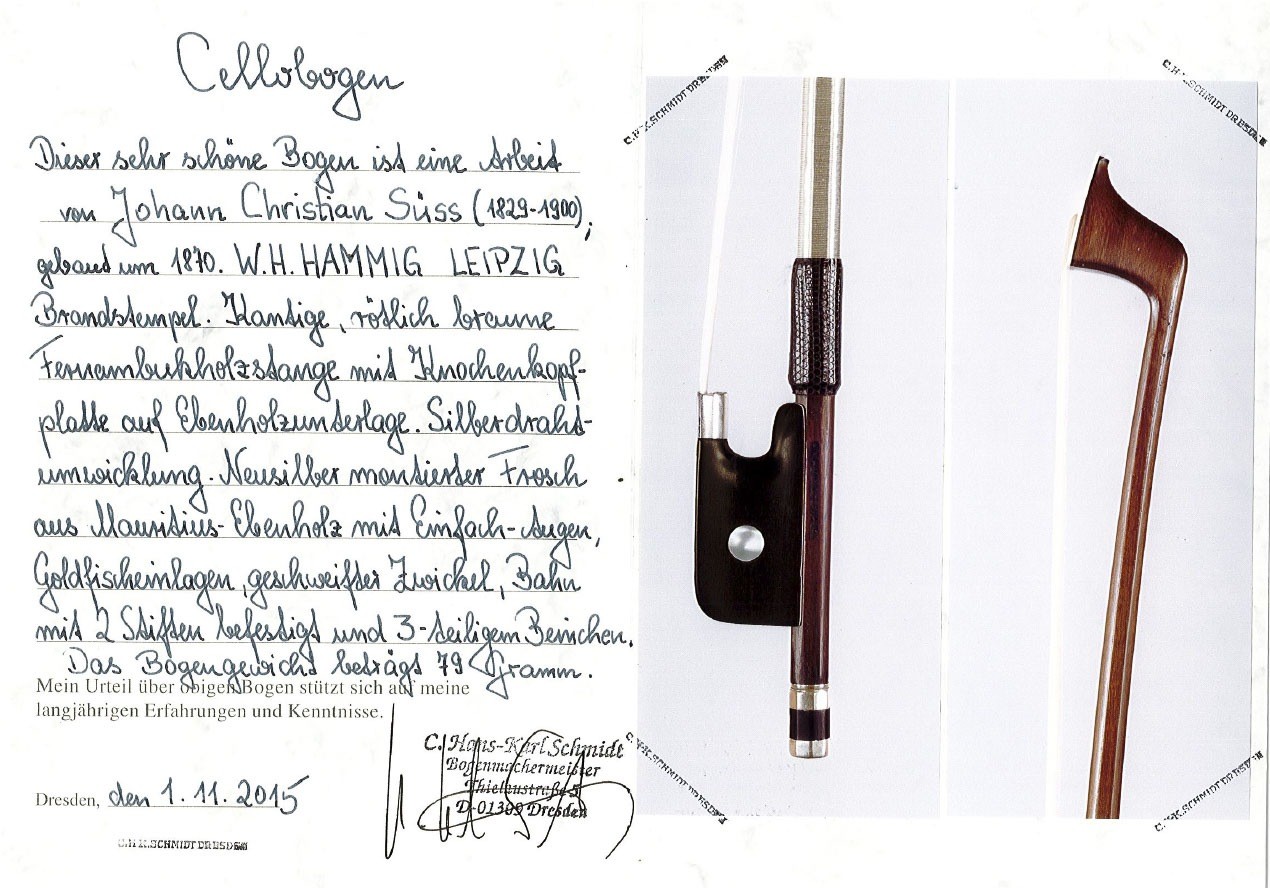 Cellobogen
Dieser sehr schöne Bogen ist eine Arbeit
von Johann Christian Süss (1829-1900),
gebaut um 1870. W.H. HAMMIG LEIPZIG
Brandstempel. Kantige, rötlich braune
Fernambukholzstange mit Knochenkopf-
platte auf Ebenholzunterlage. Silberdraht-
umwicklung. Neusilber montierter Frosch
aus Mauritius-Ebenholz mit Einfach-Augen,
Goldfischeinlagen, geschweifter Zwickel, Bahn
mit 2 Stiften befestigt und 3-teiligem Beinchen.
Das Bogengewicht beträgt 79 Gramm.
Mein Urteil über obigen Bogen stützt sich auf meine
langjährigen Erfahrungen und Kenntnisse.
C. Hans-Karl Schmidt
Bogenmachermeister
D-01309 Dresden
Dresden, den 1. 11. 2015
C.H.K.SCHMIDT DRESDEN
C.H.K.SCHMIDT DRESDEN
C.H.K.SCHMIDT DRESDEN
C.H.K.SCHMIDT DRESDEN
C.H.K.SCHMIDT DRESDEN